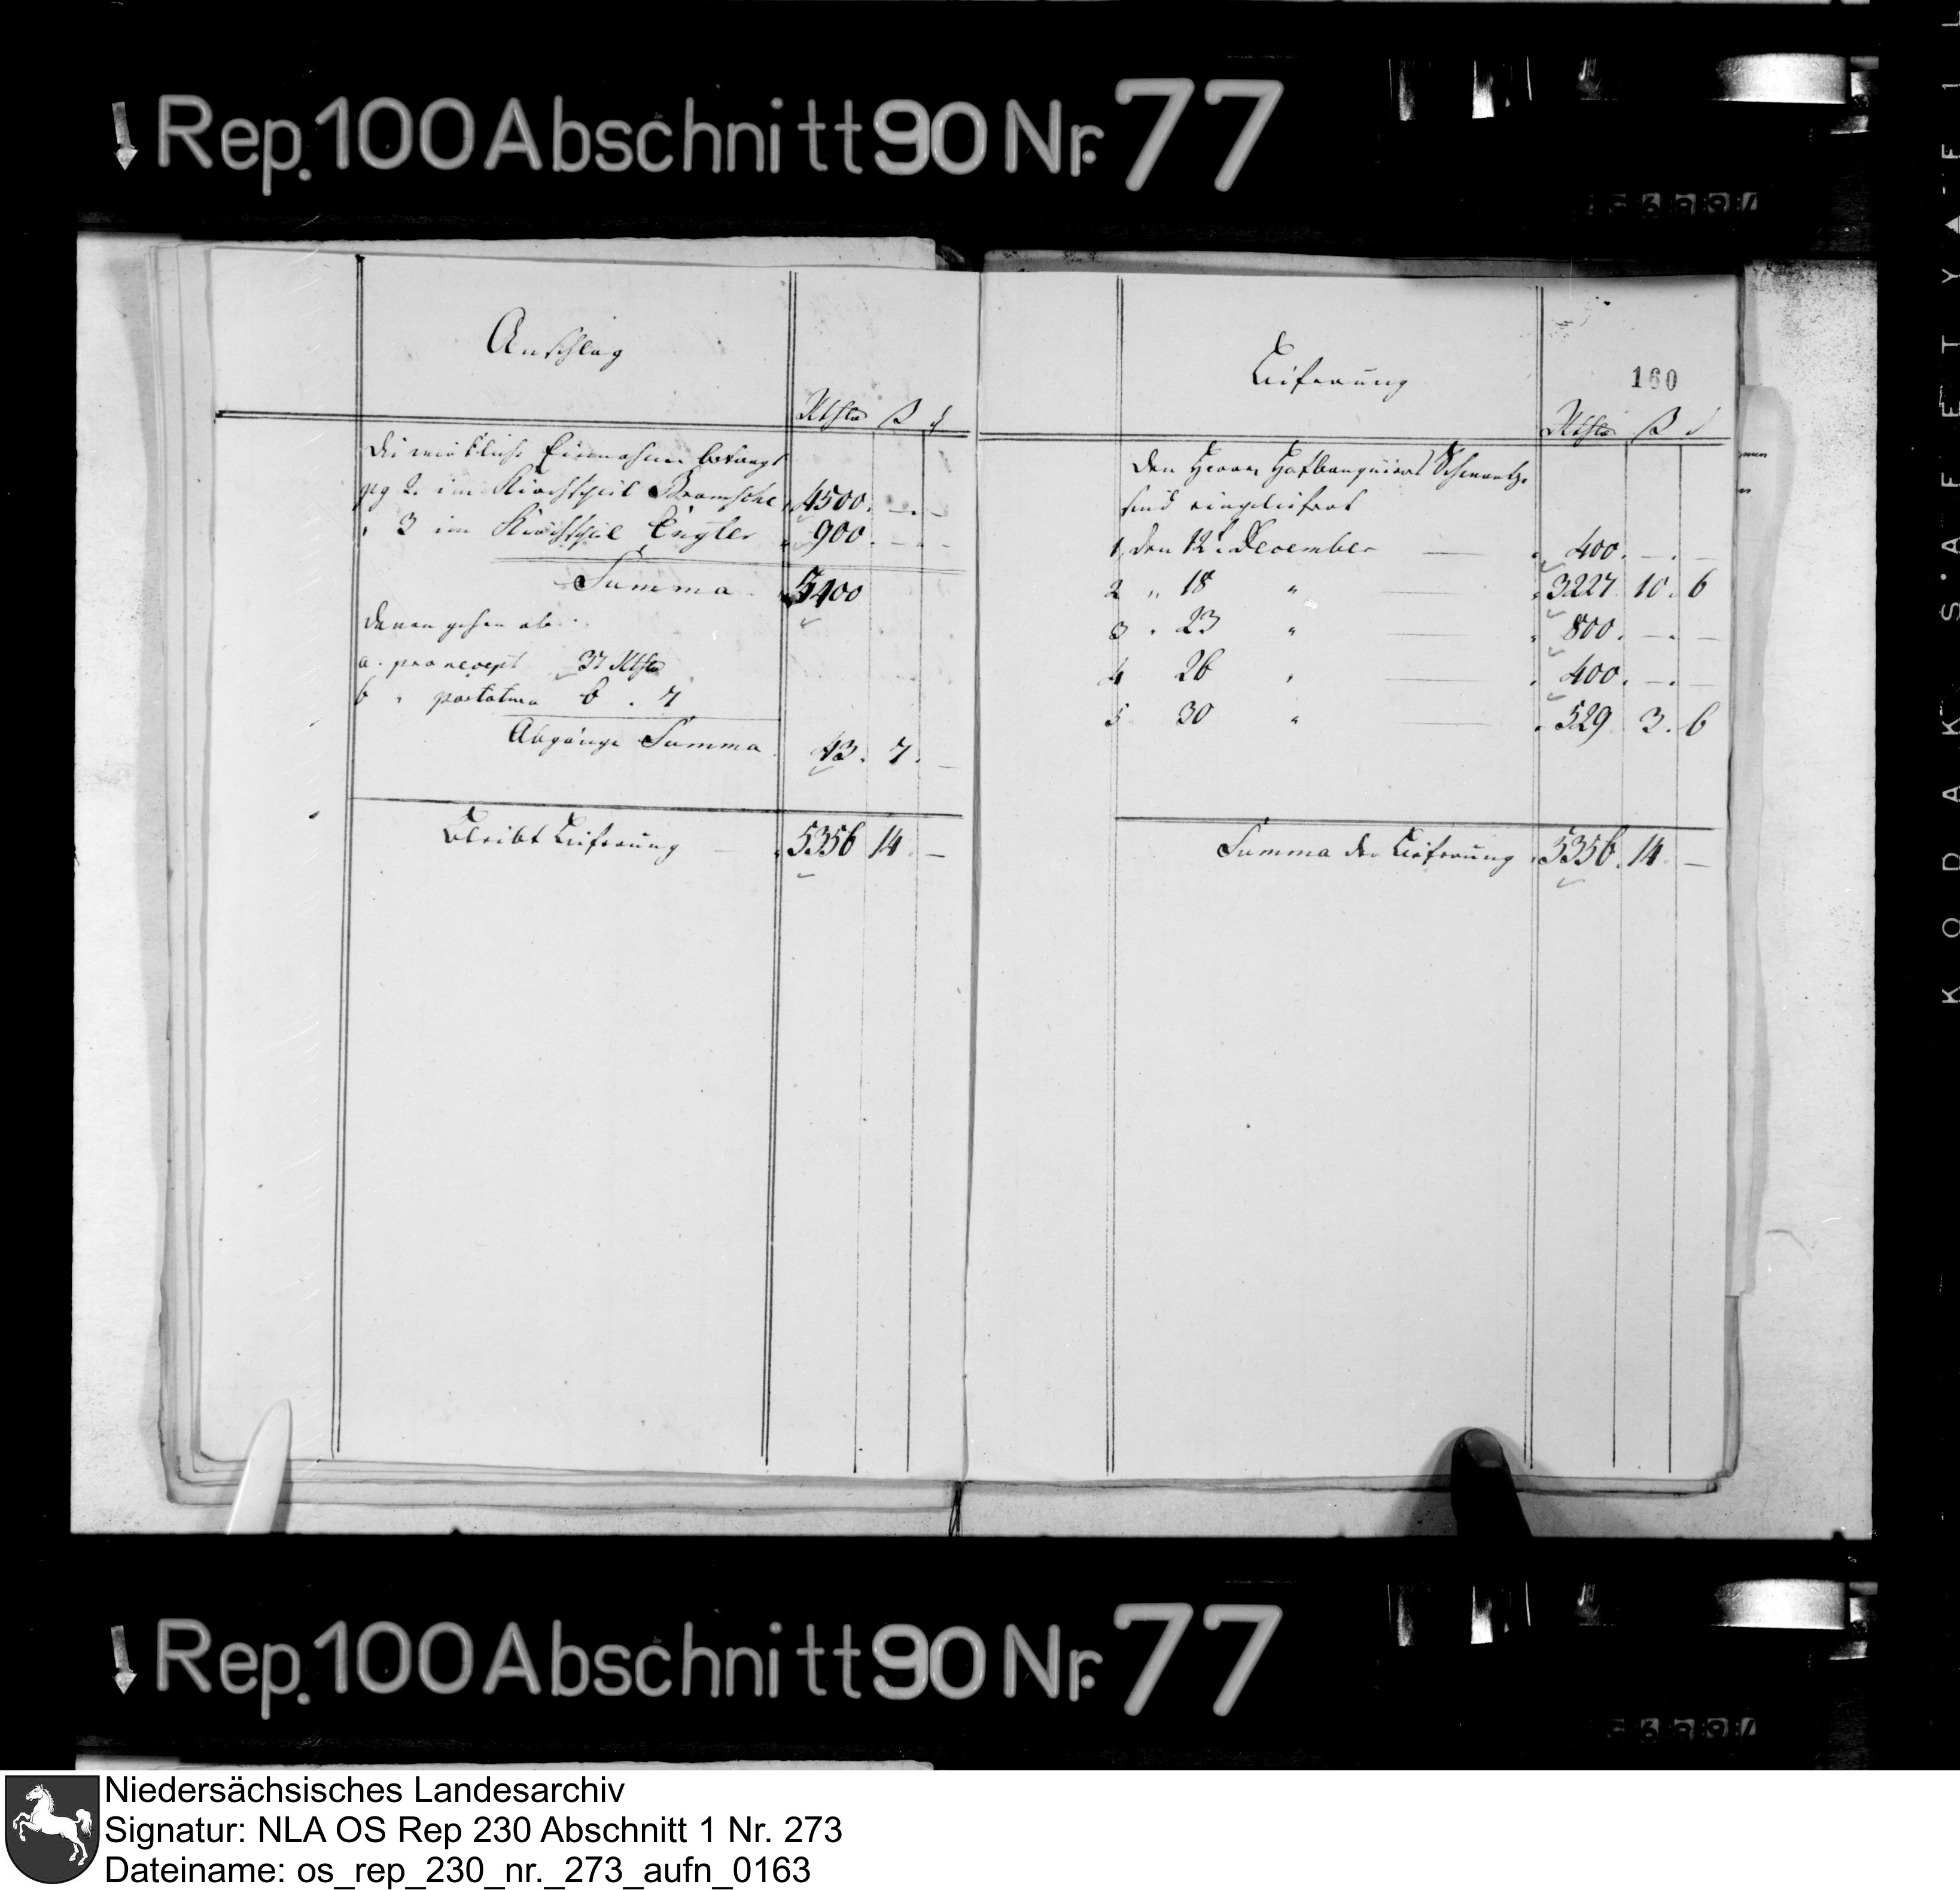 Rep. 100 Abschnitt 90 Nr. 77
Anschlag
Rthlr ß d
Die wirkliche Einnahme beträgt
pg 2. im Kirchspiel Bramsche 4500. —. —
" 3 im Kirchspiel Engter 900. — —
Summa 5400
davon gehen ab.
a. pro recept 37 Rthlr
b " portatura 6 . 7
Abgänge Summa 43. 7. —
Bleibt Lieferung 5356 14 —
160
Lieferung
Rthlr ß d
den Herrn Hofbanquiers
sind eingeliefert
1 den 12t. December — 400. —. —
2 " 18 " — 3227 10. 6
3 " 23 " — 800. —. —
4 26 " — 400. —. —
5 30 " — 529 3. 6
Summa der Lieferung 5356. 14 —
Rep. 100 Abschnitt 90 Nr. 77
KODAK SAFETY
Niedersächsisches Landesarchiv
Signatur: NLA OS Rep 230 Abschnitt 1 Nr. 273
Dateiname: os_rep_230_nr._273_aufn_0163